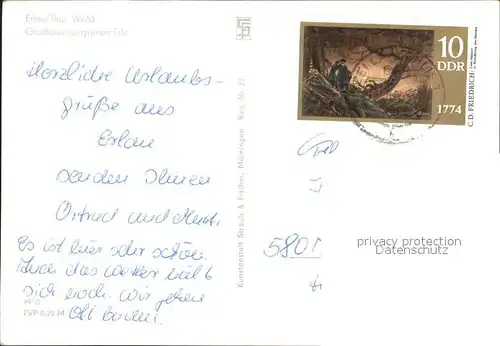 Erlau/Thür. Wald
Gasthaus zur grünen Erle
Herzliche Urlaubs-
grüße aus
Erlau
senden Ihnen
Ortrud und
Es ist hier sehr schön.
Auch das Wetter hielt
sich noch. Wir gehen
oft baden.
EVP 0,20 M
Kunstanstalt Straub & Fischer, Meiningen
10
DDR
1774
C.D. FRIEDRICH
580
privacy protection
Datenschutz